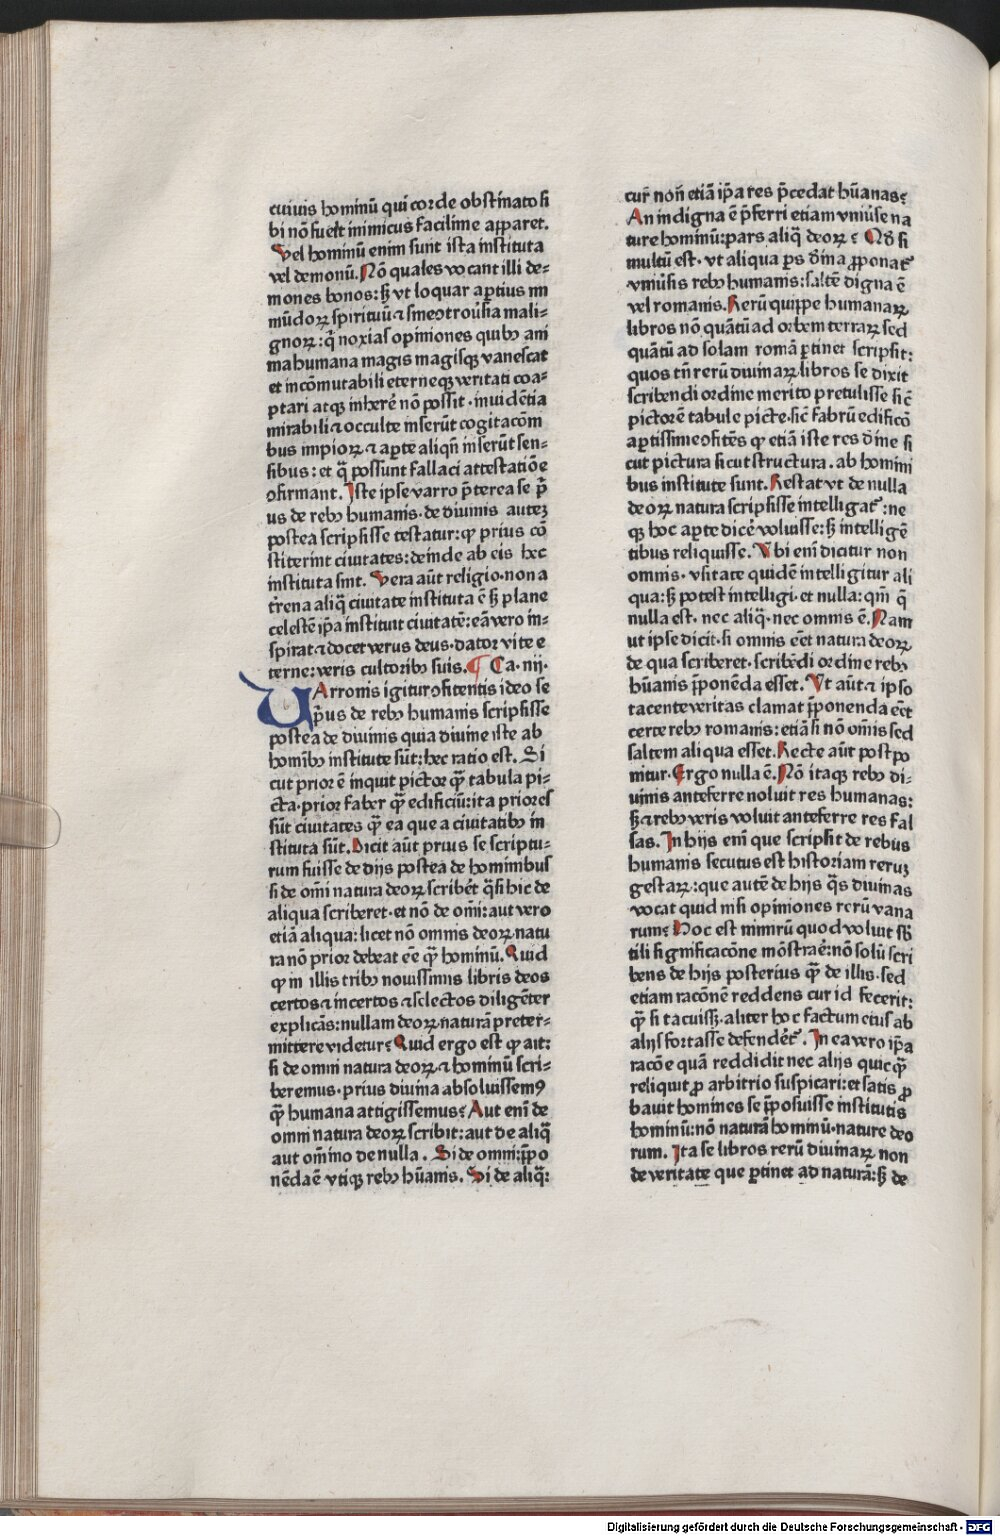 cuiuis hominū qui corde obstinato si
bi nō fuerit inimicus facilime apparet.
Vel hominū enim sunt ista instituta
vel demonū. Nō quales vocant illi de-
mones bonos: sꝫ vt loquar aꝑtius im
mūdoꝝ spirituū ⁊ sine ꝯtrouṡia mali-
gnoꝝ: q̄ noxias opiniones quibꝰ ani
ma humana magis magisqꝫ vanescat
et incōmutabili eterneqꝫ veritati coa-
ptari atqꝫ inherē nō possit. inuidētia
mirabili ⁊ occulte inserūt cogitacōni
bus impioꝝ ⁊ aꝑte aliqn̄ inserūt sen-
sibus: et q̄ possunt fallaci attestatiōe
ꝯfirmant. Iste ipse varro p̄terea se p̄
us de rebꝰ humanis. de diuinis autez
postea scripsisse testatur: ꝙ prius cō
stiterint ciuitates: deinde ab eis hec
instituta sint. Vera aūt religio. non a
t'rena aliq̄ ciuitate instituta ē sꝫ plane
celestē ip̄a instituit ciuitatē: eā vero in-
spirat ⁊ docet verus deus. dator vite e
terne: veris cultoribꝰ suis. ¶ Ca. iiij.
VArronis igitur ꝯfitentis ideo se
p̄us de rebꝰ humanis scripsisse
postea de diuinis quia diuine iste ab
homībꝰ institute sūt: hec ratio est. Si
cut prior ē inquit pictor q̄ȝ tabula pi-
cta. prior faber q̄ȝ edificiū: ita priores
sūt ciuitates q̄ȝ ea que a ciuitatibꝰ in
stituta sūt. Dicit aūt prius se scriptu-
rum fuisse de dijs postea de hominibus
si de om̄i natura deoꝝ scribēt q̄si hic de
aliqua scriberet. et nō de om̄i: aut vero
etiā aliqua: licet nō omnis deoꝝ natu
ra nō prior debeat eē q̄ȝ hominū. Quid
ꝙ in illis tribꝰ nouissimis libris deos
certos ⁊ incertos ⁊ selectos diligēter
explicās: nullam deoꝝ naturā preter-
mittere videtur? Quid ergo est ꝙ ait:
si de omni natura deoꝝ ⁊ hominū scri-
beremus. prius diuina absoluissemꝰ
q̄ȝ humana attigissemus? Aut enī de
omni natura deoꝝ scribit: aut de aliq̄
aut om̄ino de nulla. Si de omni: p̄po
nēda ē vtiqꝫ rebꝰ hūanis. Si de aliq̄:
cur noñ etiā ip̄a res p̄cedat hūanas?
An indigna ē p̄ferri etiam vniūse na
ture hominū: pars aliq̄ deoꝝ? Qđ si
multū est. vt aliqua ꝑs diūina ꝓponat᷑
vniūsis rebꝰ humanis: saltē digna ē
vel romanis. Rerū quippe humanaꝝ
libros nō quātū ad orbem terraꝝ sed
quātū ad solam romā ꝑtinet scripsit:
quos tn̄ rerū diuinaꝝ libros se dixit
scribendi ordine merito pretulisse sic̄
pictorē tabule picte. sic̄ fabrū edificō
aꝑtissime ꝯfitēs ꝙ etiā iste res d̄ine si
cut pictura sicut structura. ab homini
bus institute sunt. Restat vt de nulla
deoꝝ natura scripsisse intelligat᷑: ne
qꝫ hoc aꝑte dicē voluisse: sꝫ intelligē
tibus reliquisse. Vbi enī dicitur non
omnis. vsitate quidē intelligitur ali
qua: sꝫ potest intelligi. et nulla: qm̄ q̄
nulla est. nec aliq̄. nec omnis ē. Nam
ut ipse dicit. si omnis eēt natura deoꝝ
de qua scriberet. scribēdi ordine rebꝰ
hūanis p̄ponēda esset. Vt aūt ⁊ ipso
tacente veritas clamat p̄ponenda eēt
certe rebꝰ romanis: etiā si nō om̄is sed
saltem aliqua esset. Recte aūt postpo
nitur. Ergo nulla ē. Nō itaqꝫ rebꝰ di-
uinis anteferre noluit res humanas:
sꝫ ⁊ rebꝰ veris voluit anteferre res fal
sas. In hijs enī que scripsit de rebus
humanis secutus est historiam reruꝫ
gestaꝝ: que autē de hijs q̄s diuinas
vocat quid nisi opiniones rerū vana
rum? Hoc est nimirū quod voluit sb̄
tili significacōne mōstraē: nō solū scri
bens de hijs posterius q̄ȝ de illis. sed
etiam racōnē reddens cur id fecerit:
q̄ȝ si tacuissꝫ. aliter hoc factum eius ab
alijs fortasse defendēt᷑. In ea vero ip̄a
racōe quā reddidit nec alijs quicq̄ȝ
reliquit ꝓ arbitrio suspicari: et satis ꝓ
bauit homines se p̄posuisse institutis
hominū: nō naturā hominū. nature deo
rum. Ita se libros rerū diuinaꝝ non
de veritate que ꝑtinet ad naturā: sꝫ de
Digitalisierung gefördert durch die Deutsche Forschungsgemeinschaft - DFG